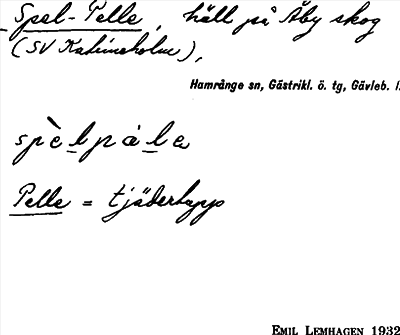 Spel-Pelle, häll på Åby skog
(SV Katrineholm),
Hamrånge sn, Gästrikl. ö. tg, Gävleb. l.
spèlpàle
Pelle = tjädertupp
EMIL LEMHAGEN 1932